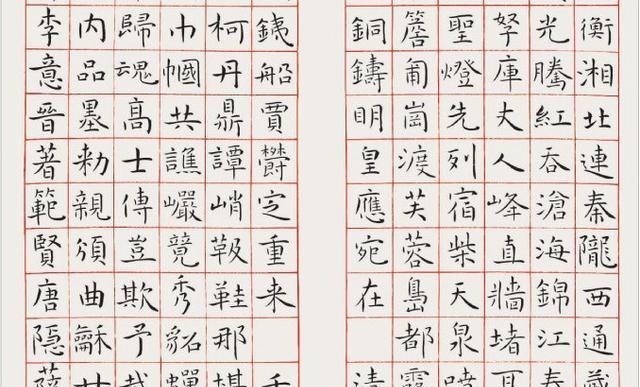 衡湘北連秦隴西通
光騰紅吞滄海錦江春
孥庫丈人峰直牆堵耳
聖燈先列宿柴天泉噴
匍崗渡芙蓉島都靈
銅鑄明皇應宛在清
銕船賈欝定重来
柯丹鼎譚峭靸鞋那堪
巾幗共譙巗競秀貂蟬
歸魂高士傳豈欺予哉
内品墨勅親頒曲龢甘
李意晉著範賢唐隠